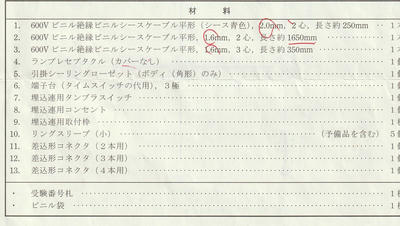 材 料
1. 600V ビニル絶縁ビニルシースケーブル平形 (シース青色), 2.0mm, 2心, 長さ約 250mm ‥‥ 1本
2. 600V ビニル絶縁ビニルシースケーブル平形, 1.6mm, 2心, 長さ約 1650mm ‥‥ 1本
3. 600V ビニル絶縁ビニルシースケーブル平形, 1.6mm, 3心, 長さ約 350mm ‥‥ 1
4. ランプレセプタクル (カバーなし) ‥‥ 1
5. 引掛シーリングローゼット (ボディ (角形) のみ) ‥‥ 1
6. 端子台 (タイムスイッチの代用), 3極 ‥‥ 1
7. 埋込連用タンブラスイッチ ‥‥ 1
8. 埋込連用コンセント ‥‥ 1
9. 埋込連用取付枠 ‥‥ 1
10. リングスリーブ (小) ‥‥ (予備品を含む) 5
11. 差込形コネクタ (2本用) ‥‥ 1
12. 差込形コネクタ (3本用) ‥‥ 1
13. 差込形コネクタ (4本用) ‥‥ 1
・ 受験番号札 ‥‥ 1
・ ビニル袋 ‥‥ 1